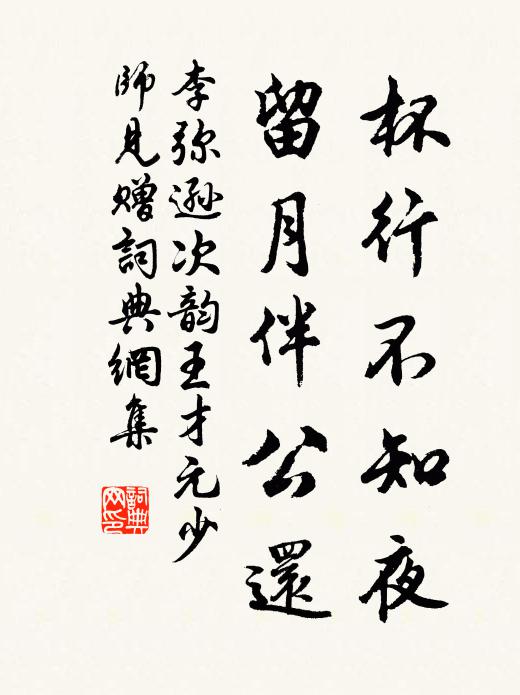 杯行不知夜
留月伴公還
李弥遜次韵王才元少
師見贈詞典網集
詞典网印